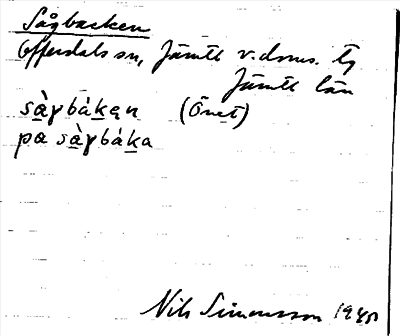 Sågbacken
Offerdals sn, Jämtl v. doms. tg
Jämtl län
sàɣbákęn (Önet)
pɑ sàɣbáka
Nils Simonsson